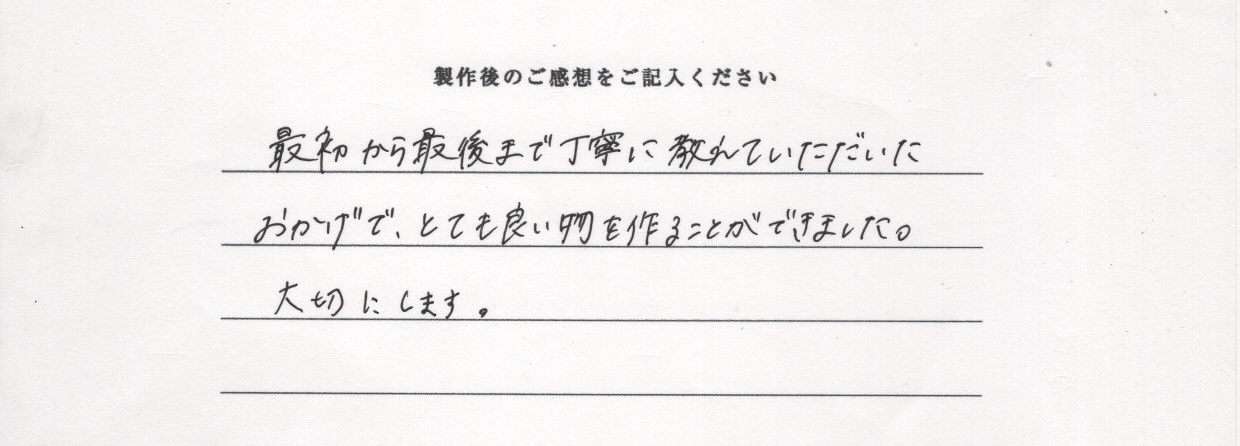 製作後のご感想をご記入ください
最初から最後まで丁寧に教えていただいた
おかげで、とても良い物を作ることができました。
大切にします。